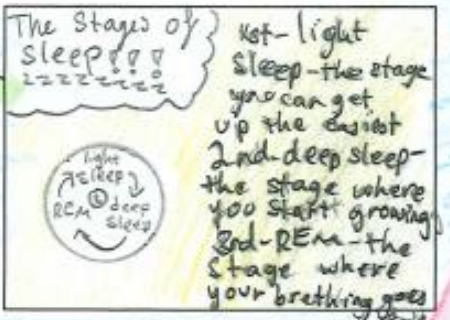 The Stages of
Sleep!!!
zzzzzzzz
light
sleep
REM
deep
sleep
1st-light
Sleep-the stage
you can get
up the easiest
2nd-deep sleep-
the stage where
you start growing
3rd-REM-the
stage where
your brething goes